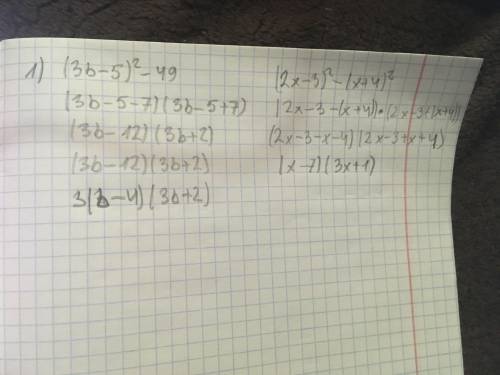 1) (3b-5)²-49
(3b-5-7)(3b-5+7)
(3b-12)(3b+2)
(3b-12)(3b+2)
3(b-4)(3b+2)
(2x-3)²-(x+4)²
(2x-3-(x+4))•(2x-3+(x+4))
(2x-3-x-4)(2x-3+x+4)
(x-7)(3x+1)